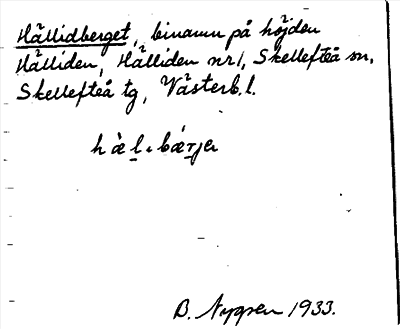 Hällidberget, binamn på höjden
Hälliden, Hälliden nr 1, Skellefteå sn,
Skellefteå tg, Västerb. l.
B. Nygren 1933.